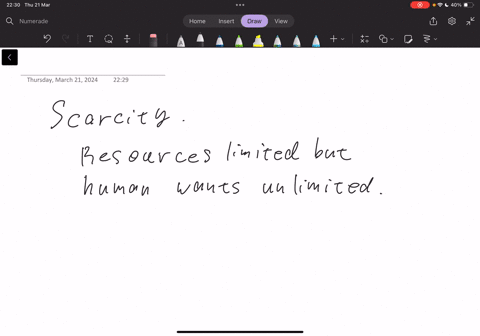 22:30 Thu 21 Mar
40%
Numerade
Home Insert Draw View
Thursday, March 21, 2024 22:29
Scarcity.
Resources limited but
human wants unlimited.